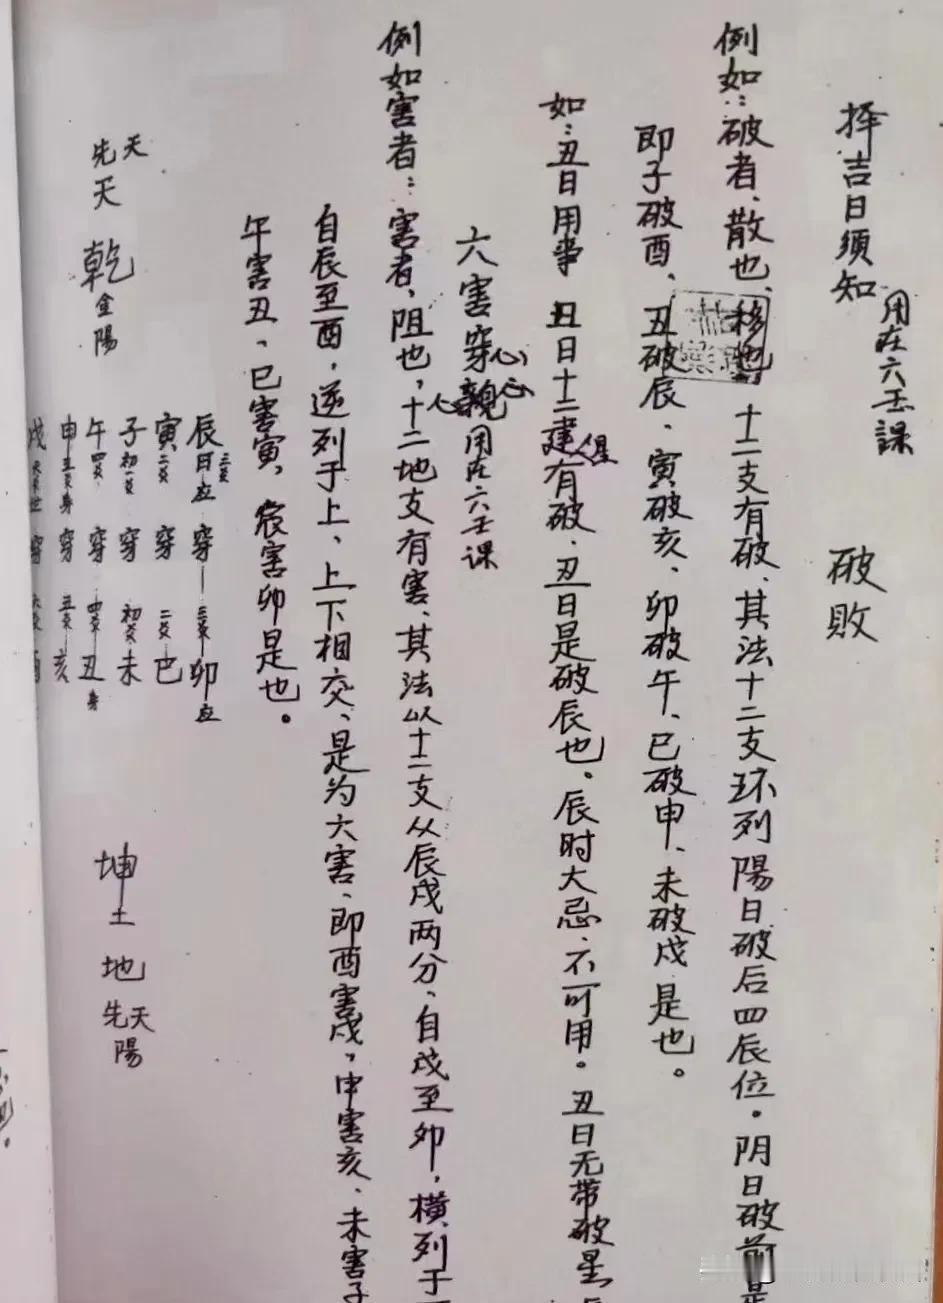 择吉日须知
用在六壬課
破敗
例如：破者、散也、移也、十二支有破、其法十二支环列陽日破后四辰位。阴日破前是
即子破酉、丑破辰、寅破亥、卯破午、巳破申、未破戌是也。
如：丑日用事 丑日十二建星有破、丑日是破辰也、辰时大忌、不可用。丑日无带破星
六害穿心
六親心心用在六壬課
例如害者：害者，阻也，十二地支有害、其法以十二支从辰戌两分、自戌至卯，横列于
自辰至酉，逆列于上、上下相交、是为六害、即酉害戌，申害亥、未害子
午害丑、巳害寅，辰害卯是也。
辰日应 三爻 穿 三爻 卯应
寅二爻 穿 二爻 巳
子初爻 穿 初爻 未
午四爻 穿 四爻 丑身
申五爻身 穿 五爻 亥
戌 穿
先天
天
乾金陽
坤土
地
先天
陽